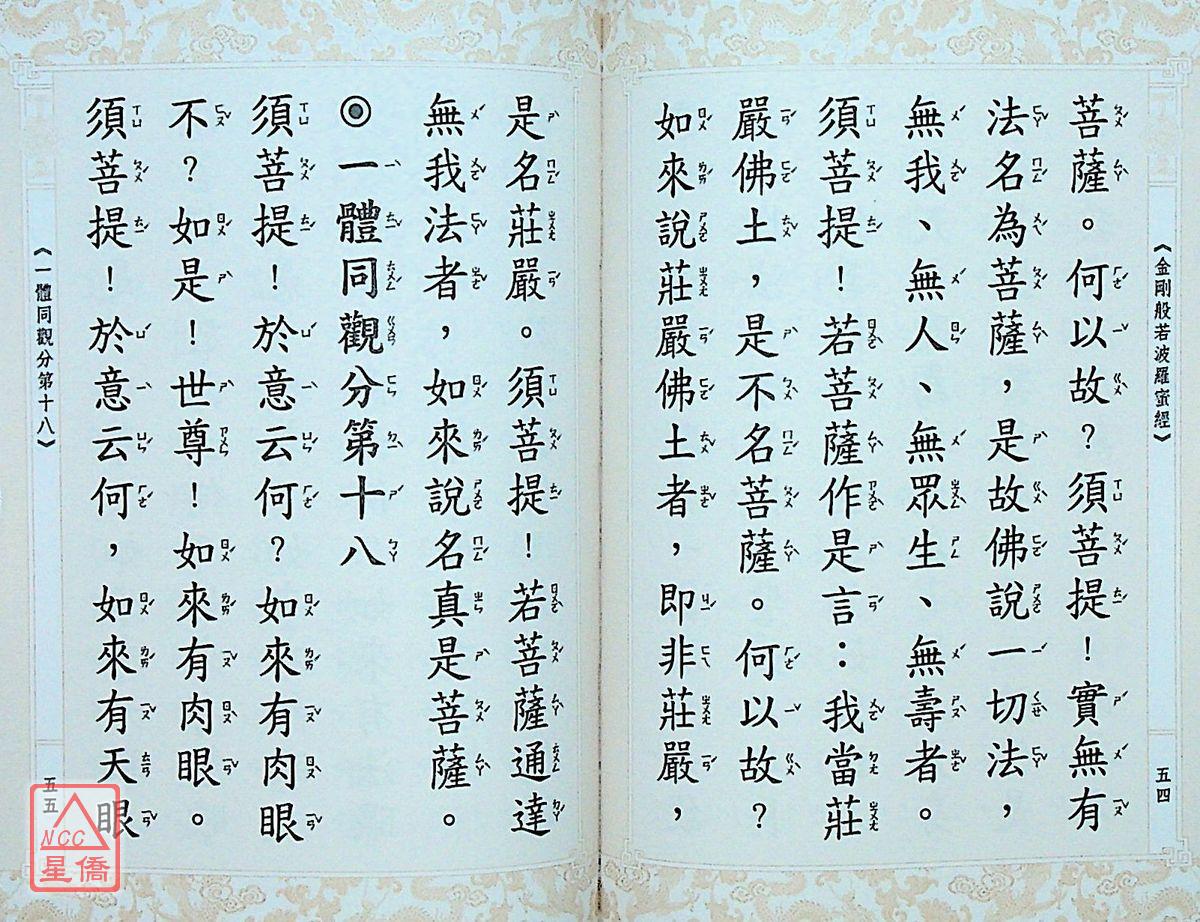 《金剛般若波羅蜜經》
五四
菩薩。何以故？須菩提！實無有
法名為菩薩，是故佛說一切法，
無我、無人、無眾生、無壽者。
須菩提！若菩薩作是言：我當莊
嚴佛土，是不名菩薩。何以故？
如來說莊嚴佛土者，即非莊嚴，
是名莊嚴。須菩提！若菩薩通達
無我法者，如來說名真是菩薩。
◎一體同觀分第十八
須菩提！於意云何？如來有肉眼
不？如是！世尊！如來有肉眼。
須菩提！於意云何，如來有天眼
《一體同觀分第十八》
五五
NCC
星僑